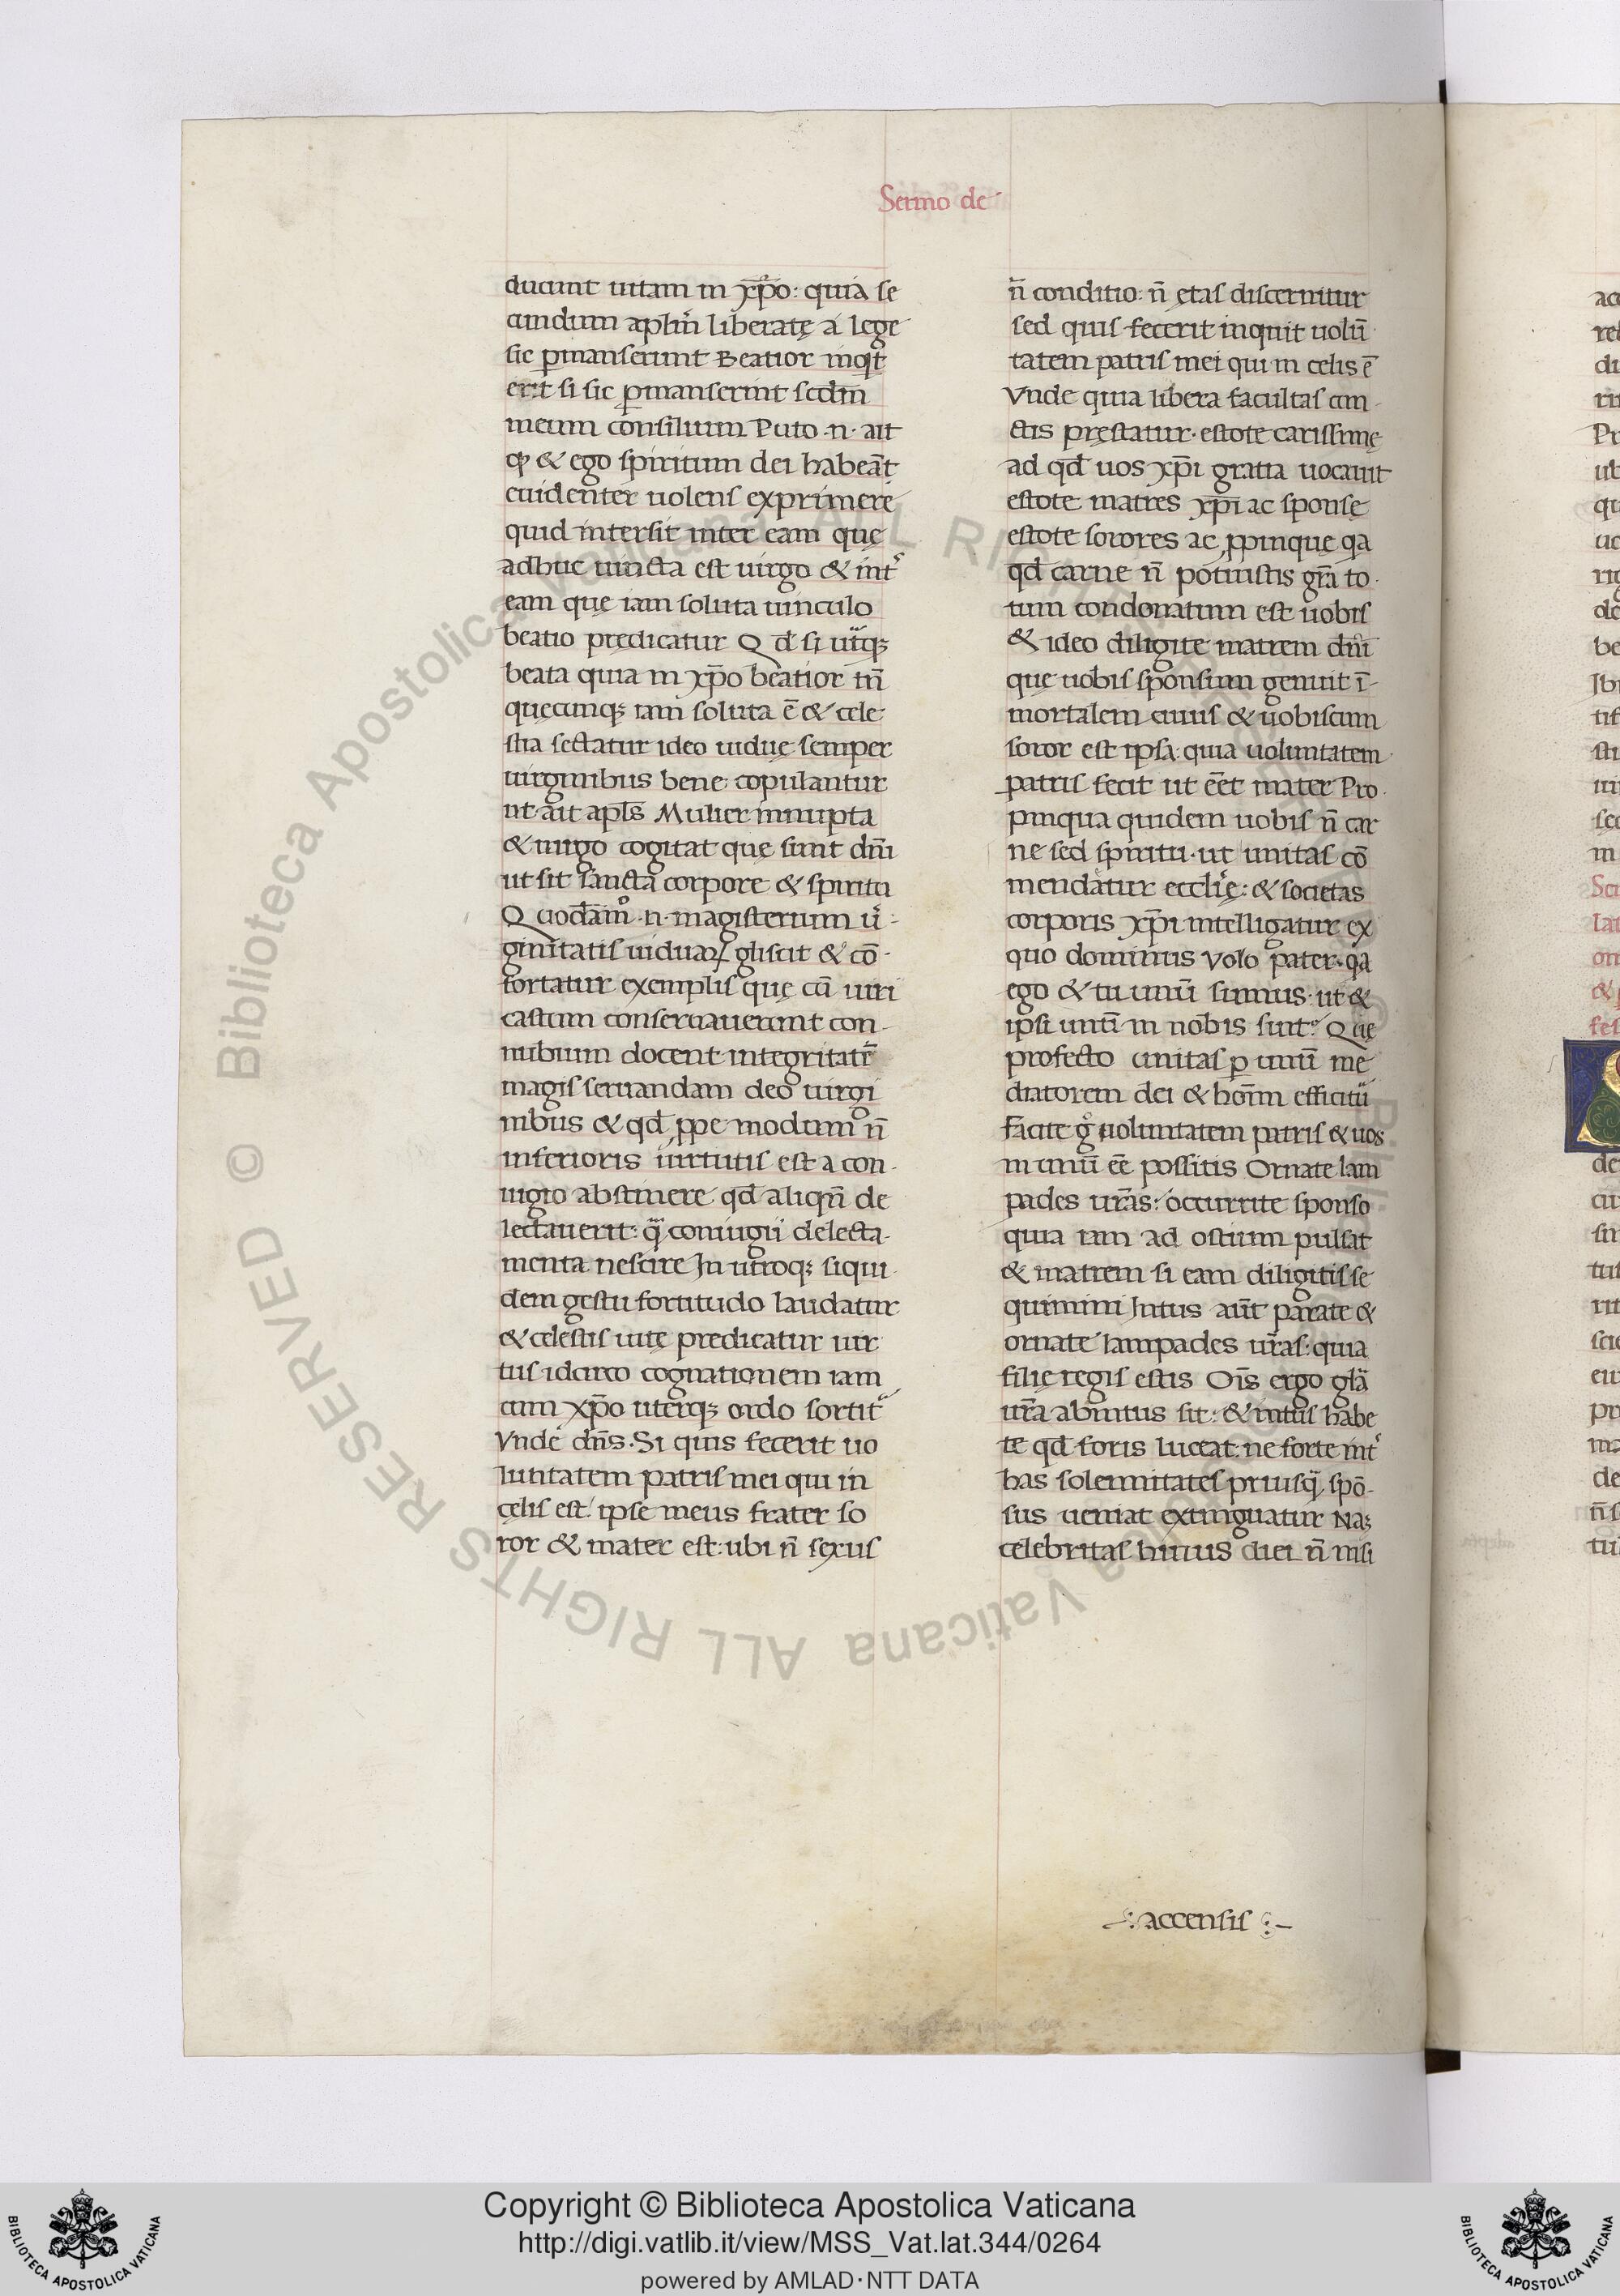 Sermo de
ducunt uitam in xp̄o: quia se
cundum aplm̄ liberatę a lege
sic ꝑmanserunt Beatior inqͥt
erit si sic ꝑmanserint scdm̄
meum consilium Puto .n. ait
ꝙ & ego spiritum dei habeāt
euidenter uolens exprimere
quid intersit inter eam quę
adhuc uincta est uirgo & int᷑
eam quę iam soluta uinculo
beatio predicatur Qd̄ si
beata quia in xp̄o beatior tn̄
quęcunqꝫ iam soluta ē & cele
stia sectatur ideo uiduę semper
uirginibus bene copulantur
ut ait apls̄ Mulier innupta
& uirgo cogitat quę sunt dn̄i
ut sit sancta corpore & spiritu
Quodāmͦ .n. magisterium uͥ
ginitatis uiduaꝝ gliscit & cō
fortatur exemplis quę cū uiri
castum conseruauerunt con
nubium docent integritatē
magis seruandam deo uirgi
nibus & qd̄ ꝓpe modum n̄
inferioris uirtutis est a con
iugio abstinere qd̄ aliqn̄ de
lectauerit: qᷓ coniugii delecta
menta nescire In utroqꝫ siqui
dem gestu fortitudo laudatur
& celestis uitę predicatur uir
tus idcirco cognationem iam
cum xp̄o uterqꝫ ordo sortit᷑
Vnde dn̄s. Si quis fecerit uo
luntatem patris mei qui in
cęlis est: ipse meus frater so
ror & mater est: ubi n̄ sexus
n̄ conditio: n̄ ętas discernitur
sed quis fecerit inquit uolū
tatem patris mei qui in celis ē
Vnde quia libera facultas cun
ctis pręstatur. estote carissimę
ad qd̄ uos xp̄i gratia uocauit
estote matres xp̄i ac sponsę
estote sorores ac ꝓpinquę qa
qd̄ carne n̄ potuistis gr̄a to
tum condonatum est uobis
& ideo diligite matrem dn̄i
quę uobis sponsum genuit ī
mortalem cuius & uobiscum
soror est ipsa: quia uoluntatem
patris fecit ut eēt mater Pro
pinqua quidem uobis n̄ car
ne sed spiritu. ut unitas cō
mendatur eccl̄ię: & societas
corporis xp̄i intelligatur ex
quo dominus volo pater. qa
ego & tu unū sumus. ut &
ipsi unū in nobis sint. Quę
profecto unitas ꝑ unū me
diatorem dei & hom̄m efficit᷑
Facite gͦ uoluntatem patris & uos
in unū eē possitis Ornate lam
pades ur̄as: occurrite sponso
quia iam ad ostium pulsat
& matrem si eam diligitis se
quimini Intus aūt parate &
ornate lampades ur̄as: quia
filię regis estis Oīs ergo gl̄a
ur̄a abintus sit: & intus habe
te qd̄ foris luceat: ne forte int᷑
has solennitates priusqᷓ spō
sus ueniat extinguatur Naꝫ
celebritas huius diei n̄ nisi
accensis
Copyright © Biblioteca Apostolica Vaticana
http://digi.vatlib.it/view/MSS_Vat.lat.344/0264
powered by AMLAD·NTT DATA